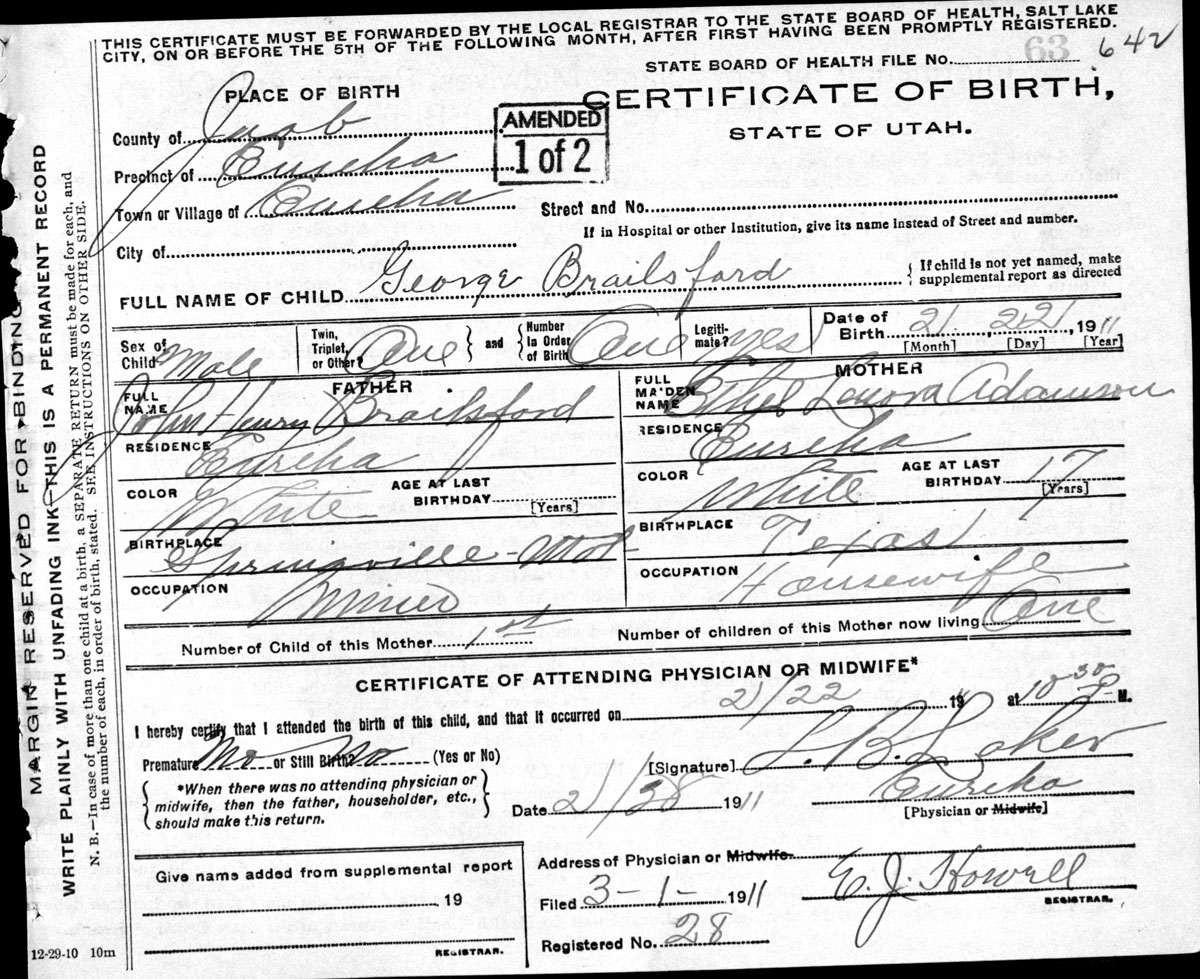 THIS CERTIFICATE MUST BE FORWARDED BY THE LOCAL REGISTRAR TO THE STATE BOARD OF HEALTH, SALT LAKE
CITY, ON OR BEFORE THE 5TH OF THE FOLLOWING MONTH, AFTER FIRST HAVING BEEN PROMPTLY REGISTERED.
STATE BOARD OF HEALTH FILE No. 63 642
PLACE OF BIRTH
CERTIFICATE OF BIRTH,
STATE OF UTAH.
AMENDED
1 of 2
County of Juab
Precinct of Eureka
Town or Village of Eureka Street and No.
If in Hospital or other Institution, give its name instead of Street and number.
City of
FULL NAME OF CHILD George Brailsford { If child is not yet named, make
supplemental report as directed
Sex of Child Male Twin, Triplet, or Other? One } and { Number In Order of Birth One Legiti-mate? Yes Date of Birth 2/ 22/ 1911
[Month] [Day] [Year]
FATHER
FULL NAME John Henry Brailsford
RESIDENCE Eureka
COLOR White AGE AT LAST BIRTHDAY [Years]
BIRTHPLACE Springville-Utah
OCCUPATION Miner
MOTHER
FULL MAIDEN NAME Ethel Lenora Adamson
RESIDENCE Eureka
COLOR White AGE AT LAST BIRTHDAY 17 [Years]
BIRTHPLACE Texas
OCCUPATION Housewife
Number of Child of this Mother 1st Number of children of this Mother now living One
CERTIFICATE OF ATTENDING PHYSICIAN OR MIDWIFE*
I hereby certify that I attended the birth of this child, and that it occurred on 2/22 1911 at 10-30 P M.
Premature No or Still Birth? No (Yes or No)
{ *When there was no attending physician or
midwife, then the father, householder, etc.,
should make this return. }
[Signature] L. B. Laker
Date 2/28 1911 Eureka
[Physician or Midwife]
Give name added from supplemental report
19
REGISTRAR.
Address of Physician or Midwife
Filed 3-1- 1911 E. J. Howell
REGISTRAR.
Registered No. 28
12-29-10 10m
MARGIN RESERVED FOR BINDING
WRITE PLAINLY WITH UNFADING INK—THIS IS A PERMANENT RECORD
N. B.—In case of more than one child at a birth, a SEPARATE RETURN must be made for each, and
the number of each, in order of birth, stated. SEE INSTRUCTIONS ON OTHER SIDE.